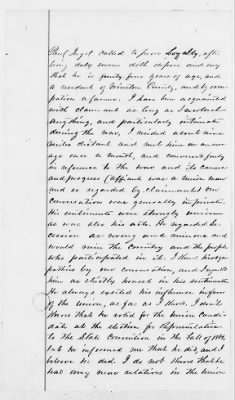 called to prove Loyalty, after
being duly sworn doth depose and say
that he is forty four years of age, and
a resident of Winston County, and by occu-
pation a farmer. I have been acquainted
with claimant as long as I recollect
anything, and particularly intimate
during the war, I resided about nine
miles distant and met him on an aver-
age once a month, and conversed freely
in reference to the war and its causes
and progress (affiant was a Union man
and so regarded by claimant) Our
conversation was generally in private.
His sentiments were strongly unionism
as was also his acts. He regarded Se-
cession as wrong and ruinous and
would ruin the Country and the people
who participated in it. I think his sym-
pathies by our conversation, and I regard
him as strictly honest in his sentiments
He always exerted his influence in favor
of the Union, as far as I think. I don't
know that he voted for the Union Candi-
date at the election for Representative
to the State Convention in the fall of 1860,
but he informed me that he did, and I
believe he did. I do not know that he
had any near relatives in the Union